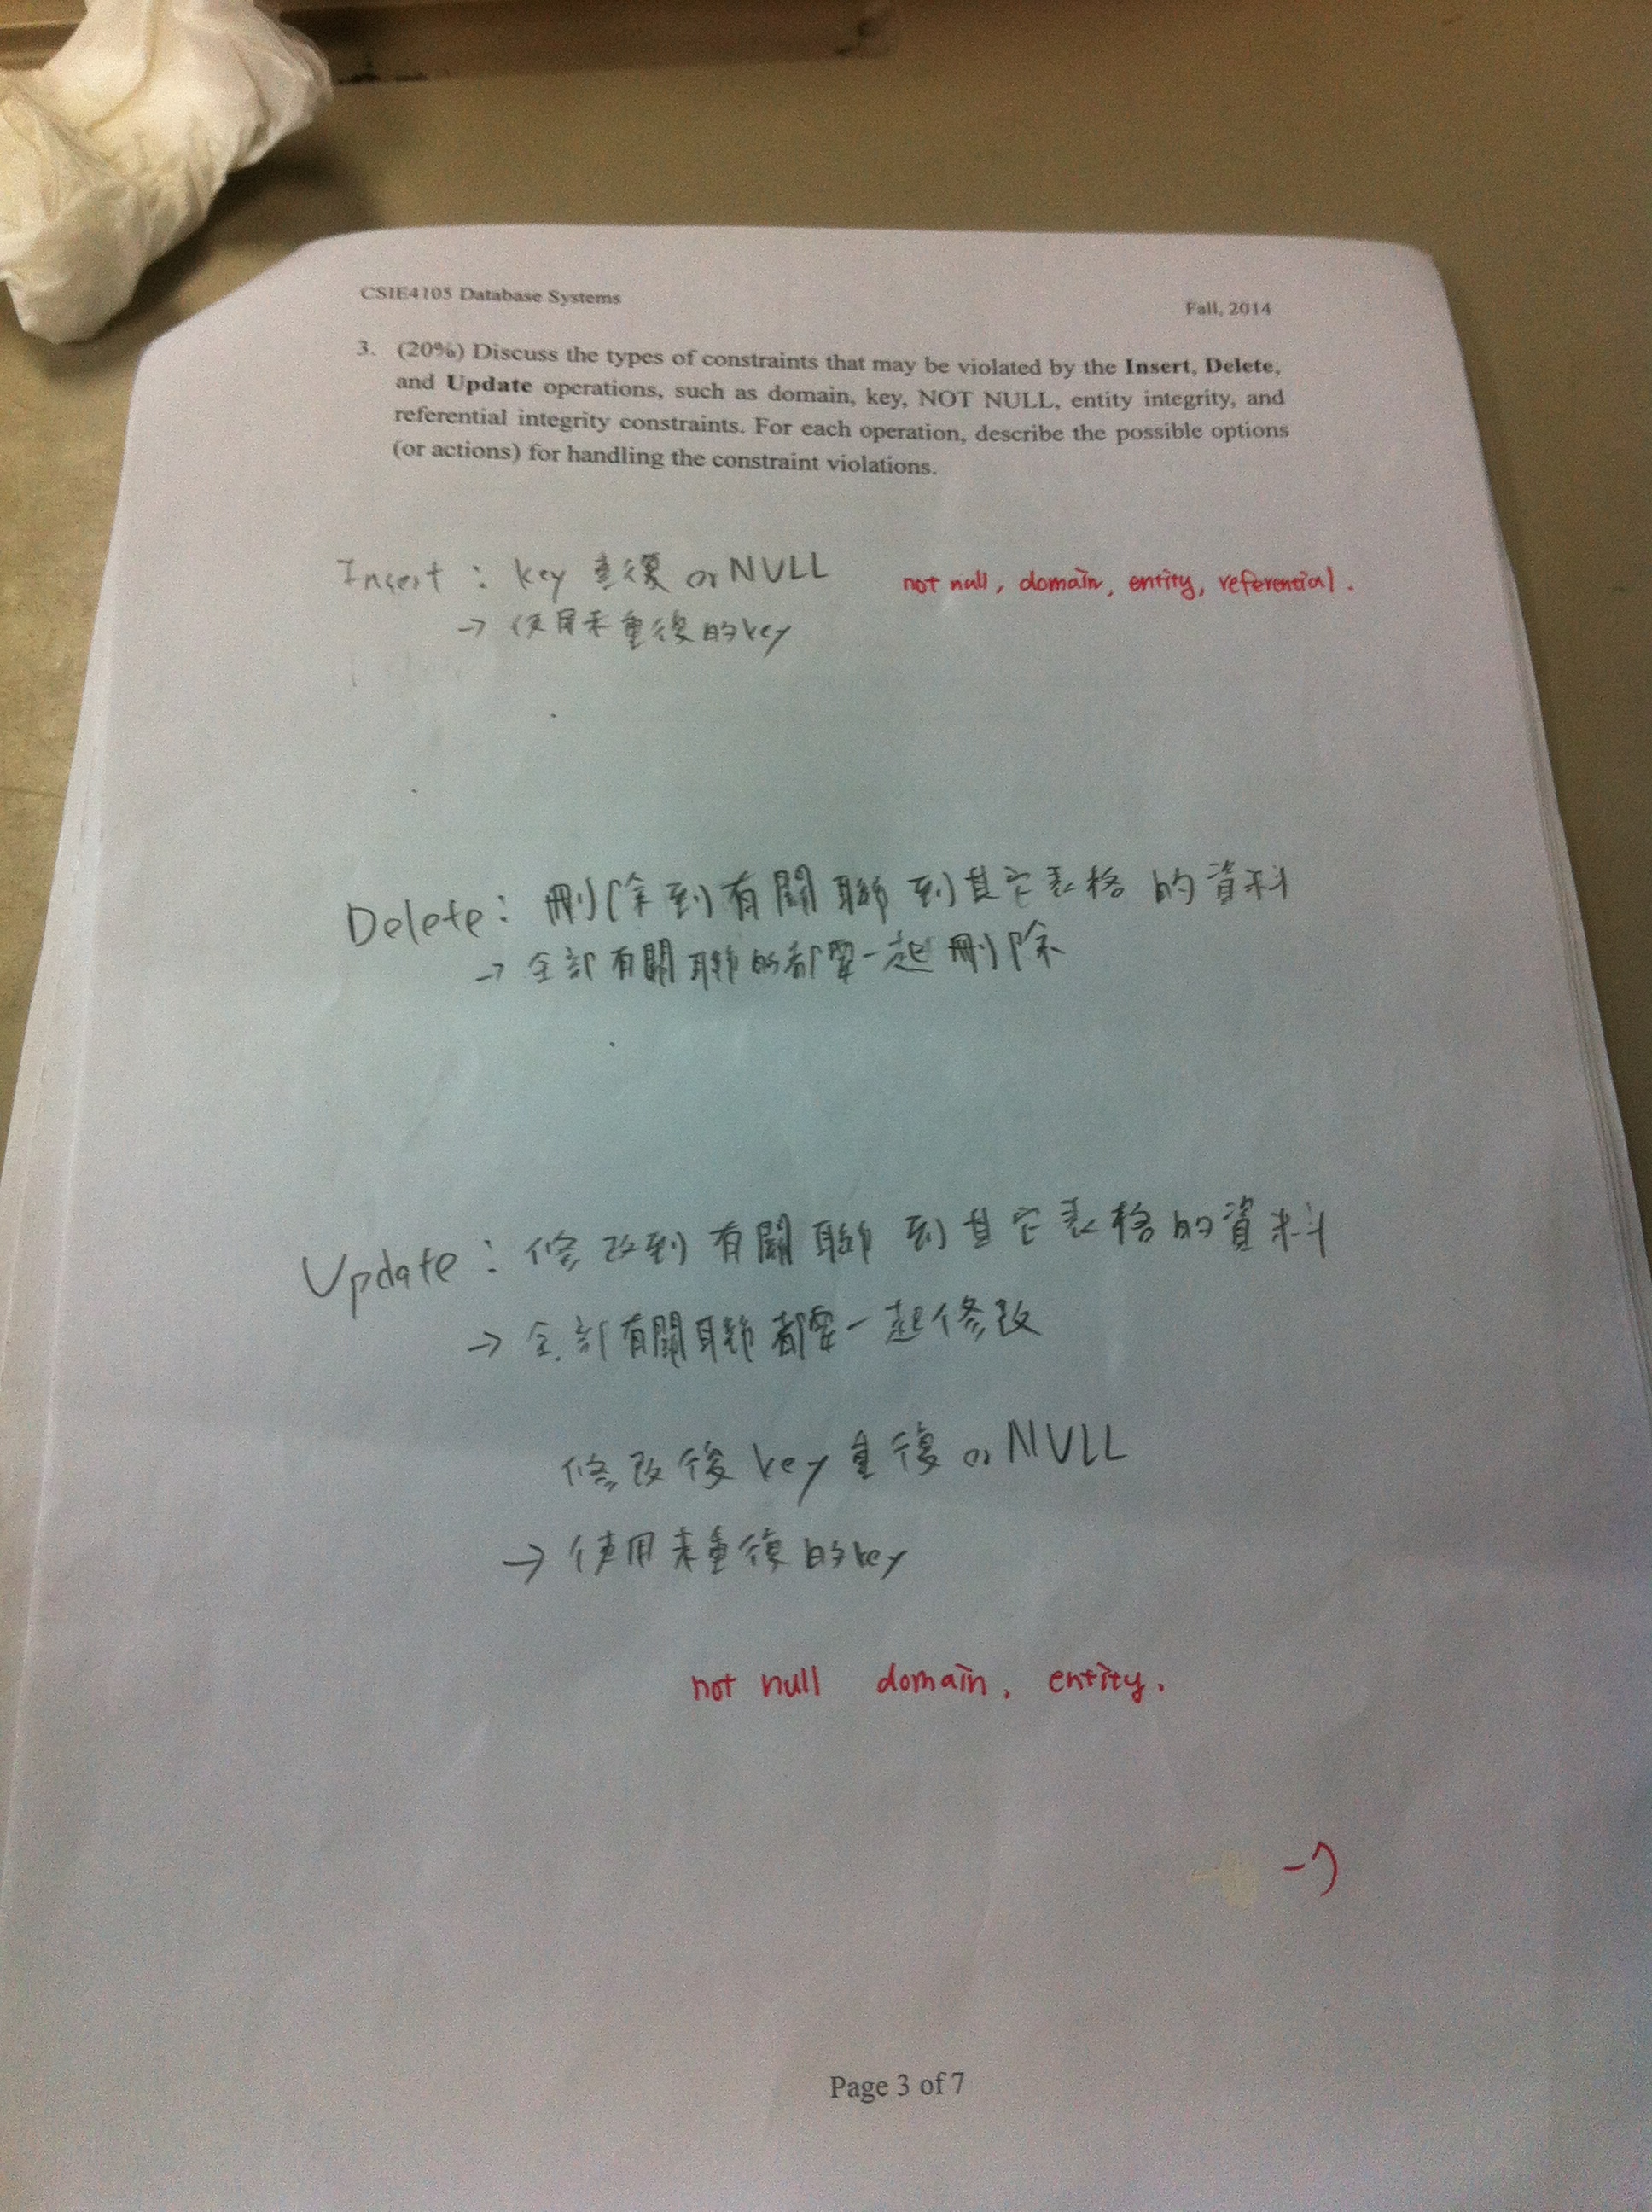 CSIE4105 Database Systems
Fall, 2014
3. (20%) Discuss the types of constraints that may be violated by the Insert, Delete,
and Update operations, such as domain, key, NOT NULL, entity integrity, and
referential integrity constraints. For each operation, describe the possible options
(or actions) for handling the constraint violations.
Insert : key 重復 or NULL
not null, domain, entity, referential.
→ 使用未重復的key
Delete : 刪除到有關聯到其它表格的資料
→ 全部有關聯的都要一起刪除
Update : 修改到有關聯到其它表格的資料
→ 全部有關聯都要一起修改
修改後 key 重復 or NULL
→ 使用未重復的key
not null domain, entity.
-7
Page 3 of 7